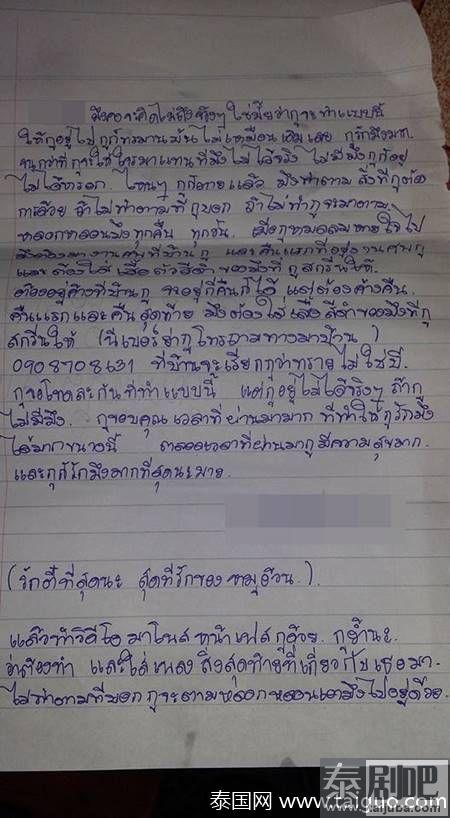 มึงคงจะคิดไม่ถึงจริงๆ ใช่มั๊ยว่ากูจะทำแบบนี้
ให้กูอยู่ไป กูก็ทรมานมันไม่เหมือนเดิมเลย กูรักมึงมาก
จนกว่าที่กูจะให้ใครมาแทนที่มึงไม่ได้จริง ไม่มีมึงกูก็อยู่
ไม่ได้หรอก ไหนๆ กูก็ตายแล้ว มึงทำตาม สิ่งที่กูต้อง
การด้วย ถ้าไม่ทำตามที่กูบอก ถ้าไม่ทำกูจะมาตาม
หลอกหลอนมึงทุกคืน ทุกวัน เมื่อกูหมดลมหายใจไป
มึงต้องมางานศพที่บ้านกู และคืนแรกที่อยู่งานศพกู
และต้องใส่ เสื้อตัวสีดำของมึงที่กูสกรีนให้
ต้องอยู่ค้างที่บ้านกู จะอยู่กี่คืนก็ได้ แต่ต้องค้างคืน
คืนแรกและคืนสุดท้าย มึงต้องใส่เสื้อสีดำของมึงที่กู
สกรีนให้ (นี่เบอร์ย่ากู โทรถามทางมาบ้าน)
0908708631 ที่บ้านจะเรียกกูว่าทรายไม่ใช่บี
กูขอโทดละกันที่ทำแบบนี้ แต่กูอยู่ไม่ได้จริงๆ ถ้ากู
ไม่มีมึง กูขอบคุณเวลาที่ผ่านมามาก ที่ทำให้กูรักมึง
ได้มากขนาดนี้ ตลอดเวลาที่ผ่านมากูมีความสุขมาก
และกูก็รักมึงมากที่สุดนะมาย
(รักตี๋ที่สุดนะ สุดที่รักของหมูอ้วน)
แล้วทำวิดีโอ มาโพสหน้าเฟสกูด้วย กูย้ำนะ
ว่าต้องทำ และใส่เพลง สิ่งสุดท้ายที่เกี่ยวกับเธอมา
ไม่ทำตามที่บอก กูจะตามหลอกหลอนเอามึงไปอยู่ด้วย
泰剧吧
www.taijuba.com
泰国网 www.taiguo.com